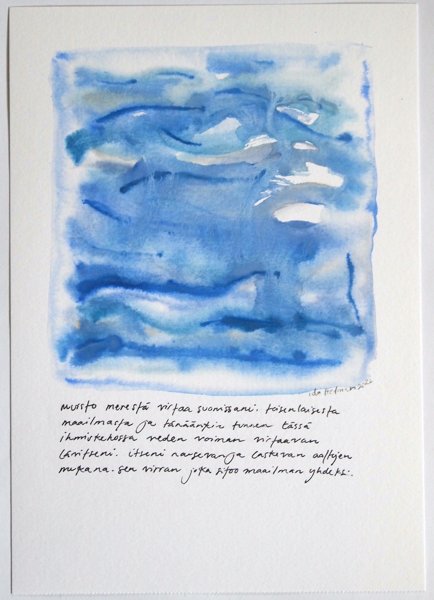 muisto merestä virtaa suonissani. toisenlaisesta
maailmasta ja tänäänkin tunnen tässä
ihmiskehossa veden voiman virtaavan
lävitseni. itseni nousevan ja laskevan aaltojen
mukana. sen virran joka sitoo maailman yhdeksi.